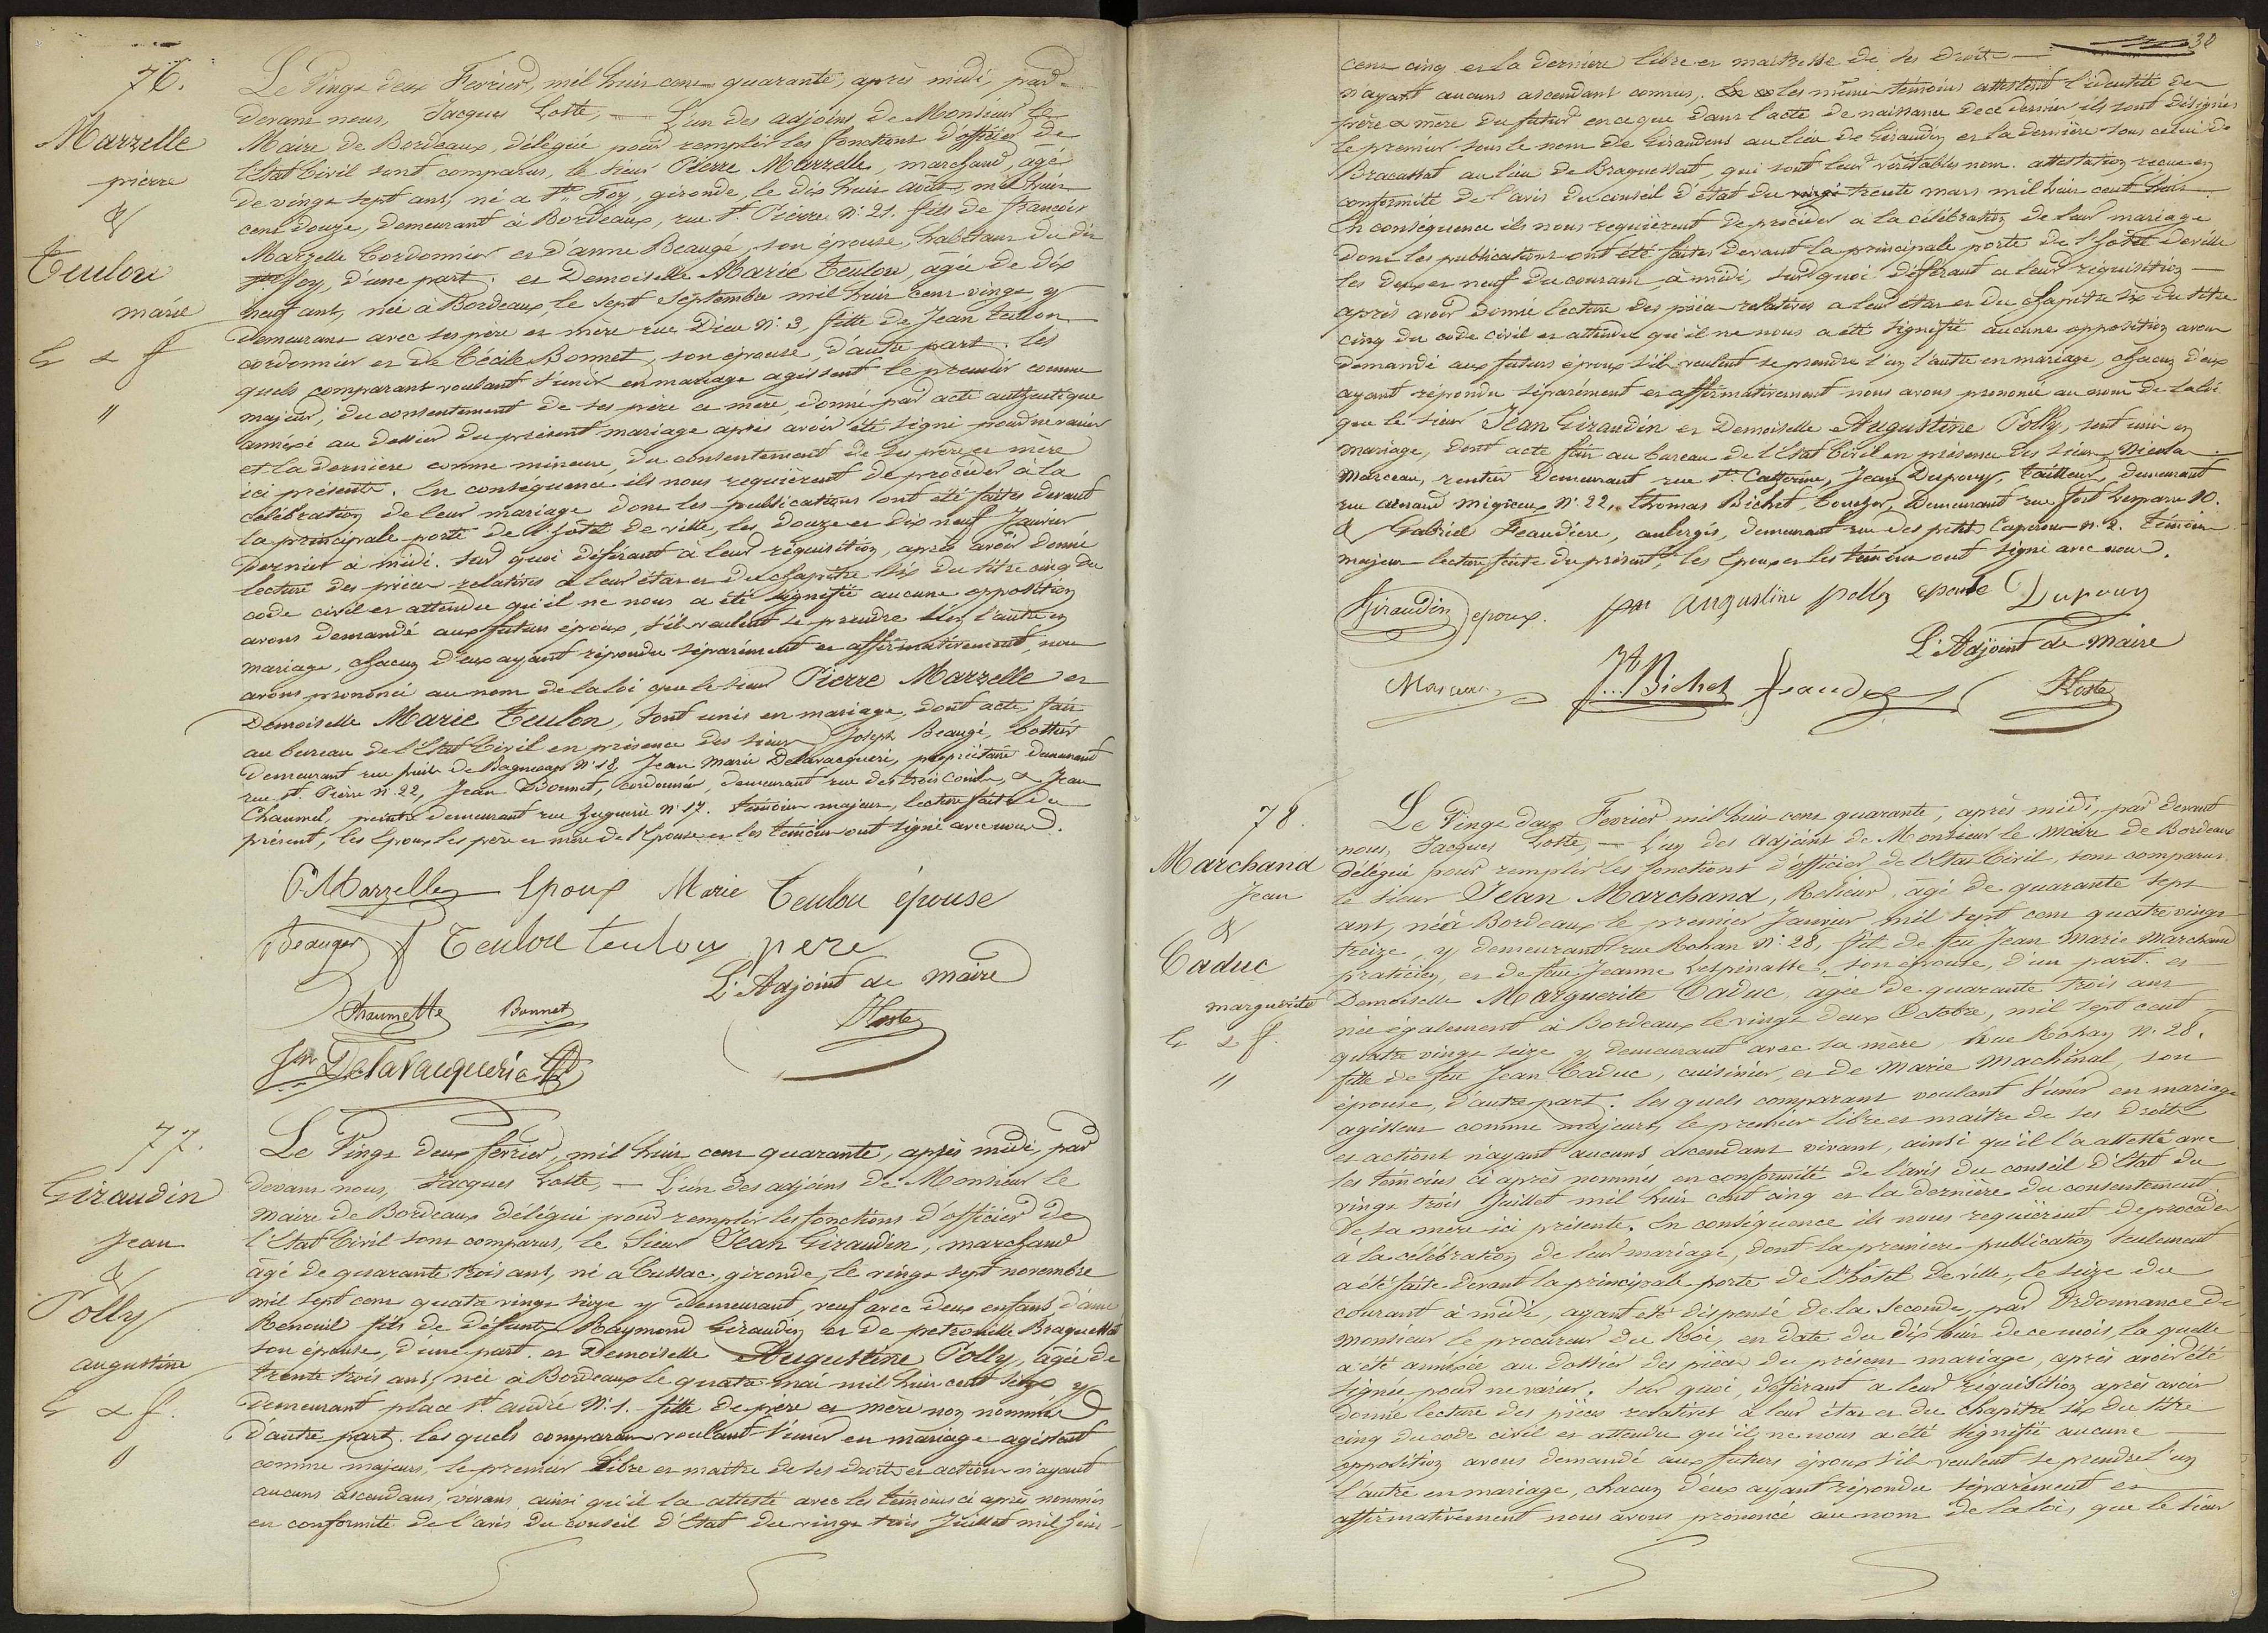 76.
Marzelle
pierre
&
Teulon
marie
G & f
"
Le Vingt deux Fevrier, mil huit cent quarante, après midi, par
devant nous, Jacques Loste, — L'un des adjoins de Monsieur le
Maire de Bordeaux, délégué pour remplir les fonctions d'officier de
l'Etat Civil sont comparus, le sieur Pierre Marzelle, marchand, agé
de vingt sept ans, né a Ste Foy, gironde, le dix huit août, mil huit
cent douze, demeurant à Bordeaux, rue St Pierre N° 21. fils de françois
Marzelle Cordonnier et d'anne Beaugé, son épouse, habitans du dit
foy, d'une part. et Demoiselle Marie Teulon, agée de dix
neuf ans, née à Bordeaux, le sept Septembre mil huit cent vingt, y
demeurant avec ses père et mère rue Dieu N° 3, fille de Jean teulon
cordonnier et de Cécile Bonnet, son épouse, d'autre part. les
quels comparant voulant s'unir en mariage agissent le premier comme
majeur, du consentement de ses père et mère, donné par acte authentique
annéxé au dossier du présent mariage après avoir été signé pour ne varier
et la dernière comme mineure, du consentement de ses père et mère
ici présents. En conséquence ils nous requièrent de procéder à la
célébration de leur mariage dont les publications ont été faites devant
la principale porte de l'hôtel de ville, les douze et dix neuf Janvier
dernier à midi. sur quoi déférant à leur réquisition, après avoir donné
lecture des pièces relatives à leur état et du chapitre six du titre cinq du
code civil et attendu qu'il ne nous a été signifié aucune opposition
avons demandé aux futurs époux, s'ils veulent se prendre l'un l'autre en
mariage, chacun d'eux ayant répondu séparément et affirmativement, nous
avons prononcé au nom de la loi que le sieur Pierre Marzelle et
Demoiselle Marie Teulon, sont unis en mariage, dont acte fait
au bureau de l'Etat Civil en présence des sieurs Joseph Beaugé, bottier
demeurant rue puits de Bagnecap N° 18, Jean Marie Delavacquerie, propriétaire demeurant
rue St. Pierre N° 22, Jean Bonnet, cordonnier, demeurant rue des trois Conils, & Jean
Chaumel, peintre demeurant rue huguerie N° 17. témoins majeurs, lecture faite du
présent, les Epoux les père et mère de l'Epouse et les témoins ont signé avec nous.
P Marzelle Epoux Marie Teulon épouse
Beauger f Teulon teulon pere
L'Adjoint de maire
Chaumette Bonnet
JLoste
Jn Delavauquerie
77.
Giraudin
Jean
&
Polly
augustine
G & f.
"
Le Vingt deux fevrier, mil huit cent quarante, après midi, par
devant nous, Jacques Loste, — L'un des adjoins de Monsieur le
maire de Bordeaux délégué pour remplir les fonctions d'officier de
l'Etat Civil sont comparus, le Sieur Jean Giraudin, marchand
âgé de quarante trois ans, né a Cussac, gironde, le vingt sept novembre
mil sept cent quatre vingt seize y demeurant, veuf avec deux enfans d'anne
Renouil fils de défunts Raymond Giraudin et de petronille Braquessat
son épouse, d'une part. et Demoiselle Augustine Polly, agée de
trente trois ans, née à Bordeaux le quatre mai mil huit cent sept y
demeurant place St. andré N° 1. fille de père et mère non nommés
d'autre part. les quels comparant voulant s'unir en mariage agissent
comme majeurs, le premier libre et maître de ses droits et actions n'ayant
aucuns ascendans vivans ainsi qu'il la attesté avec les témoins ci après nommés
en conformité de l'avis du conseil d'Etat du vingt trois Juillet mil huit
30
cent cinq et la dernière libre et maitresse de ses droits —
n'ayant aucuns ascendant connus. les même témoins attestent l'identité des
père & mère du futur en ce que dans l'acte de naissance de ce dernier ils sont désignés
le premier sous le nom de Giraudeus au lieu de Giraudin et la dernière sous celui de
Bracassat au lieu de Braquessat, qui sont leur véritables nom. attestation reçue en
conformité de l'avis du conseil d'état du vingt trente mars mil huit cent huit
En conséquence ils nous requièrent de procéder a la célébration de leur mariage
dont les publications ont été faites devant la principale porte de l'hôtel de ville
les deux et neuf du courant à midi, sur quoi déférant a leur réquisition —
après avoir donné lecture des pièces relatives a leur état et du chapitre six du titre
cinq du code civil et attendu qu'il ne nous a été signifié aucune opposition avons
demandé aux futurs époux s'ils veulent se prendre l'un l'autre en mariage, chacun d'eux
ayant répondu séparément et affirmativement nous avons prononcé au nom de la loi
que le sieur Jean Giraudin et Demoiselle Augustine Polly, sont unis en
mariage, dont acte fait au bureau de l'Etat Civil en présence des sieurs Nicolas
Marceau, rentier demeurant rue Ste Catherine, Jean Dupouy, tailleur, demeurant
rue arnaud Miqueu N° 22, thomas Bichet, Demeurant rue font Lesparre 10.
& Gabriel Feaudiere, aubergis, demeurant rue des petits Caperans N° 2. témoins
majeurs lecture faite du présent, les Epoux et les témoins ont signé avec nous.
Giraudin epoux. augustine polly epouse Dupouy
L'Adjoint de maire
Marceau Bichet feaudiere JLoste
78.
Marchand
Jean
&
Caduc
marguerite
G & f.
"
Le Vingt deux Fevrier mil huit cent quarante, après midi, par devant
nous, Jacques Loste, — L'un des Adjoint de Monsieur le Maire de Bordeaux
délégué pour remplir les fonctions d'officier de l'Etat Civil, sont comparus
le sieur Jean Marchand, Relieur, âgé de quarante sept
ans, né à Bordeaux le premier Janvier mil sept cent quatre vingt
treize, y demeurant rue Rohan N° 28, fils de feu Jean Marie Marchand
praticien, et de feue Jeanne Lespinasse, son épouse, d'un part. et
Demoiselle Marguerite Caduc, agée de quarante trois ans
née également à Bordeaux le vingt deux Octobre, mil sept cent
quatre vingt seize y demeurant avec sa mère Rue Rohan N° 28.
fille de feu Jean Caduc, cuisinier, et de Marie Machinal, son
épouse, d'autre part. les quels comparant voulant s'unir en mariage
agissent comme majeurs, le premier libre et maitre de ses droits
et actions n'ayant aucuns ascendant vivant, ainsi qu'il l'a attesté avec
les témoins ci après nommés en conformité de l'avis du conseil d'Etat du
vingt trois Juillet mil huit cent cinq et la dernière du consentement
de sa mère ici présente. En conséquence ils nous requièrent de procéder
à la célébration de leur mariage, dont la premiere publication seulement
a été faite devant la principale porte de l'hôtel de ville, le seize du
courant à midi, ayant été dispensé de la Seconde, par Ordonnance de
monsieur le procureur du Roi, en date du dix huit de ce mois, la quelle
a été annéxée au dossier des pièces du présent mariage, après avoir été
signée pour ne varier. Sur quoi, déférant a leur réquisition après avoir
donné lecture des pièces relatives à leur état et du chapitre six du titre
cinq du code civil et attendu qu'il ne nous a été signifié aucune —
opposition avons demandé aux futurs époux s'ils veulent se prendre l'un
l'autre en mariage, chacun d'eux ayant répondu séparément et
affirmativement nous avons prononcé au nom de la loi, que le sieur